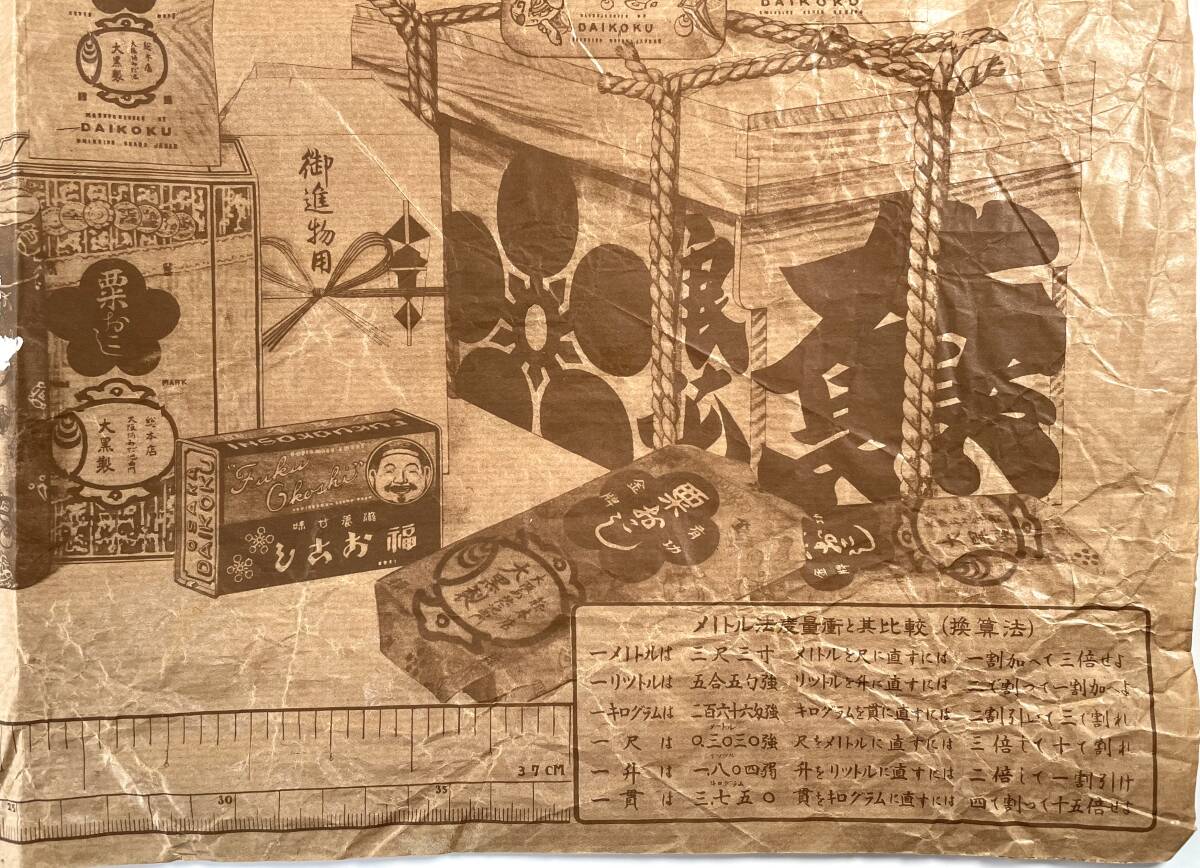 DAIKOKU
大黒製
総本店
DAIKOKU
御進物用
栗おこし
MARK
大黒製
総本店
FUKUOKOSHI
"Fuku
Okoshi"
OSAKA
DAIKOKU
滋養甘味
福おこし
栗おこし
有功
金牌
大黒製
金牌
メートル法度量衡と其比較(換算法)
一メートルは 三尺三寸 メートルを尺に直すには 一割加へて三倍せよ
一リツトルは 五合五勺強 リツトルを升に直すには 二で割つて一割加へよ
一キログラムは 二百六十六匁強 キログラムを貫に直すには 二割引いて三で割れ
一尺は 0.三〇三〇強 尺をメートルに直すには 三倍して十で割れ
一升は 一.八〇四弱 升をリットルに直すには 二倍して一割引け
一貫は 三.七五〇 貫をキログラムに直すには 四で割つて十五倍せよ
37CM
25 30 35